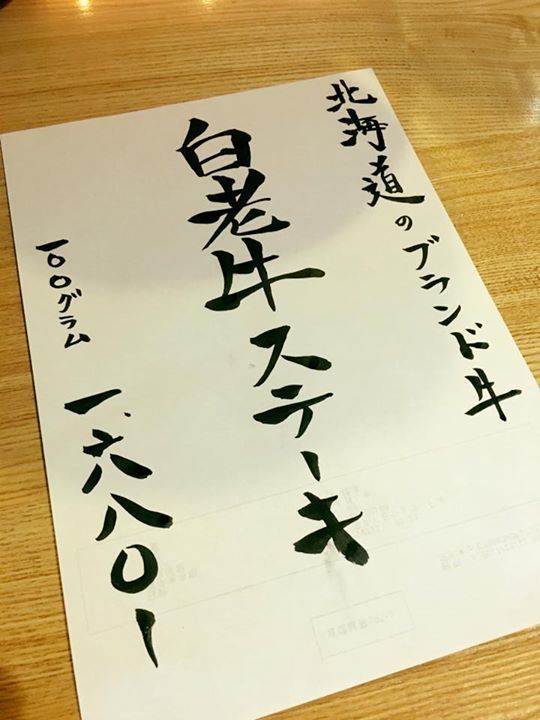 北海道のブランド牛
白老牛ステーキ
一〇〇グラム 一、六八〇ー